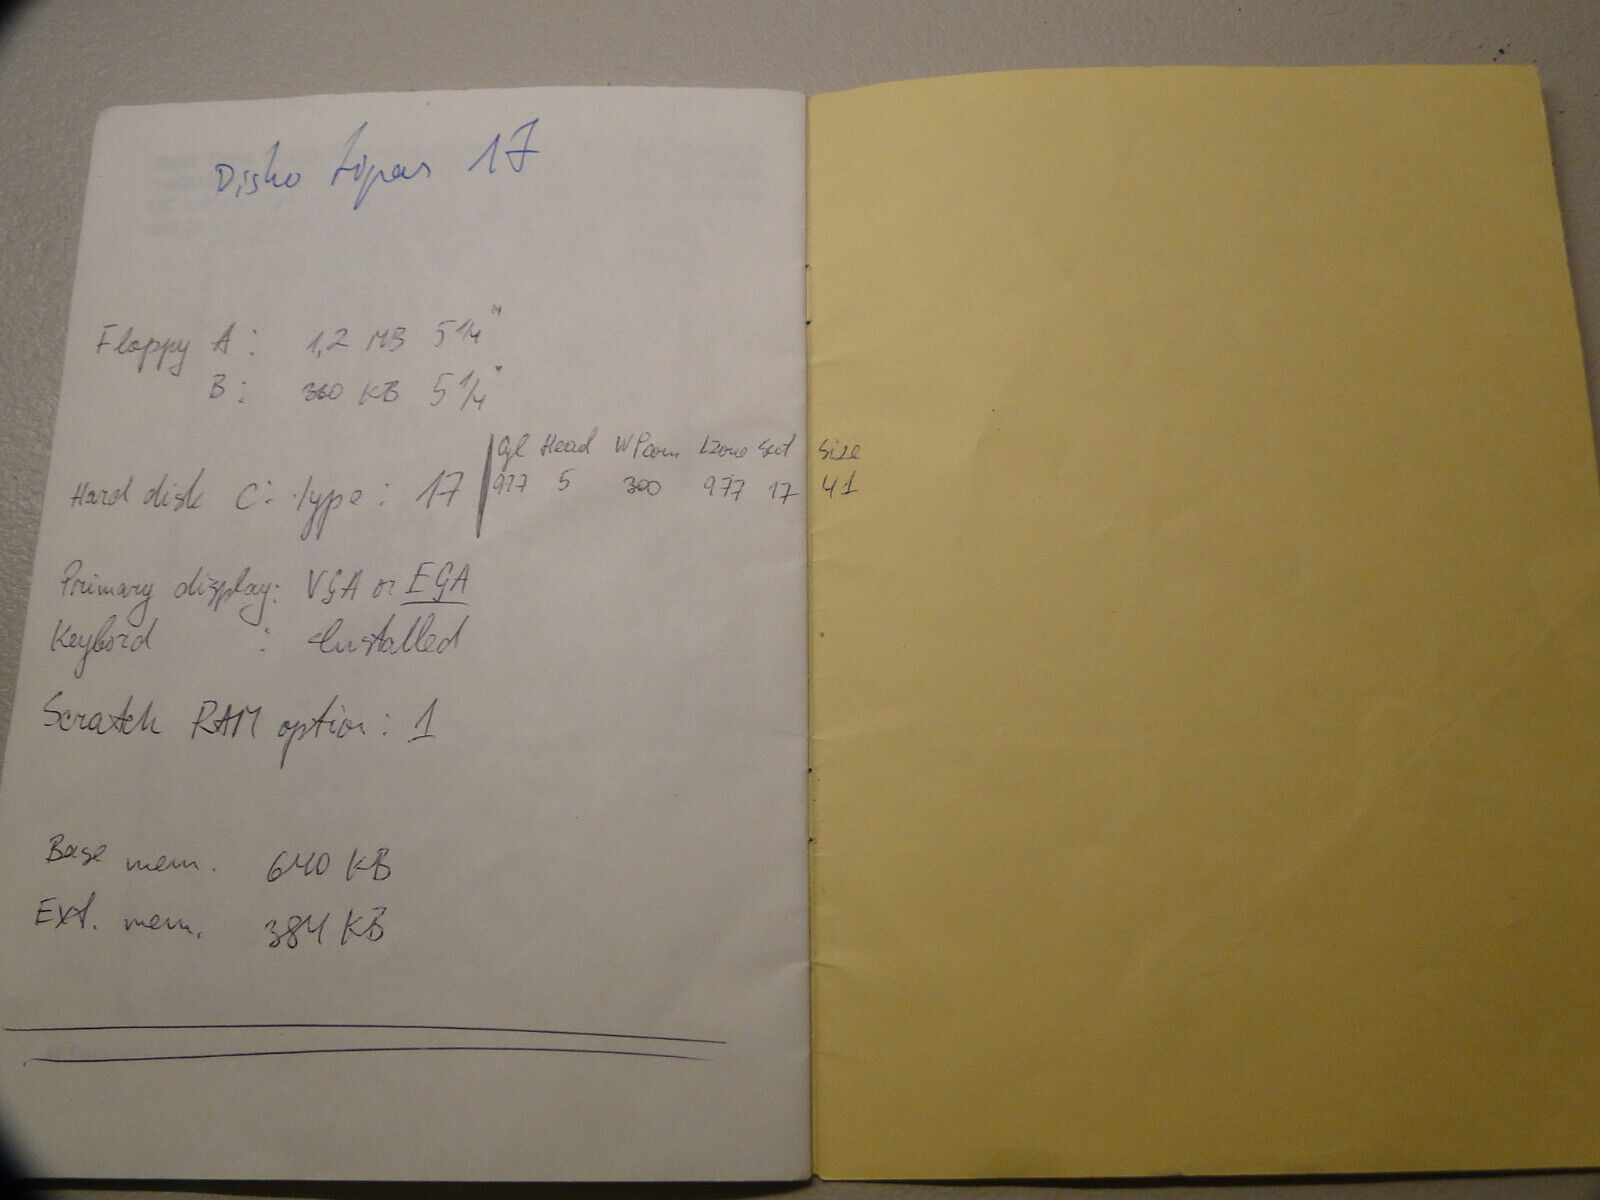 Disko tipas 17
Floppy A: 1,2 MB 5 1/4"
B: 360 KB 5 1/4"
Cyl Head WPcom LZone Sect Size
Hard disk C: type: 17 977 5 300 977 17 41
Primary display: VGA or EGA
Keybord : Installed
Scratch RAM option: 1
Base mem. 640 KB
Ext. mem. 384 KB